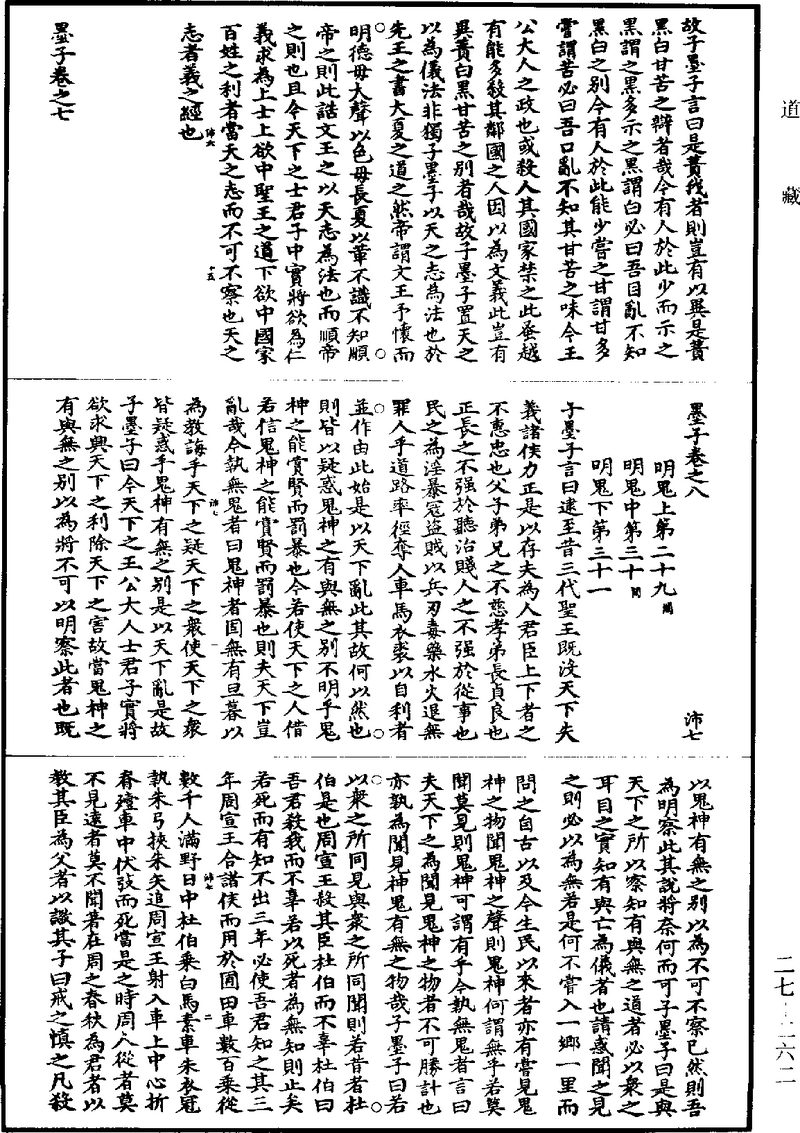 道藏
故子墨子言曰是蕡我者則豈有以異是蕡
黑白甘苦之辯者哉今有人於此少而示之
黑謂之黑多示之黑謂白必曰吾目亂不知
黑白之別今有人於此能少嘗之甘謂甘多
嘗謂苦必曰吾口亂不知其甘苦之味今王
公大人之政也或殺人其國家禁之此蚤越
有能多殺其鄰國之人因以為文義此豈有
異蕡白黑甘苦之別者哉故子墨子置天之
以為儀法非獨子墨子以天之志為法也於
先王之書大夏之道之然帝謂文王予懷而
明德毋大聲以色毋長夏以革不識不知順
帝之則此誥文王之以天志為法也而順帝
之則也且今天下之士君子中實將欲為仁
義求為上士上欲中聖王之道下欲中國家
百姓之利者當天之志而不可不察也天之
志者義之經也
墨子卷之七
沛六
十五
墨子卷之八
沛七
明鬼上第二十九闕
明鬼中第三十闕
明鬼下第三十一
子墨子言曰逮至昔三代聖王既沒天下失
義諸侯力正是以存夫為人君臣上下者之
不惠忠也父子弟兄之不慈孝弟長貞良也
正長之不强於聽治賤人之不强於從事也
民之為淫暴寇盜賊以兵刃毒藥水火退無
罪人乎道路率徑奪人車馬衣裘以自利者
並作由此始是以天下亂此其故何以然也
則皆以疑惑鬼神之有與無之別不明乎鬼
神之能賞賢而罰暴也今若使天下之人借
若信鬼神之能賞賢而罰暴也則夫天下豈
亂哉今執無鬼者曰鬼神者固無有旦暮以
為教誨乎天下之疑天下之衆使天下之衆
皆疑惑乎鬼神有無之別是以天下亂是故
子墨子曰今天下之王公大人士君子實將
欲求興天下之利除天下之害故當鬼神之
有與無之別以為將不可以明察此者也既
沛七
一
以鬼神有無之別以為不可不察已然則吾
為明察此其說將奈何而可子墨子曰是與
天下之所以察知有與無之道者必以衆之
耳目之實知有與亡為儀者也請惑聞之見
之則必以為無若是何不嘗入一鄉一里而
問之自古以及今生民以來者亦有嘗見鬼
神之物聞鬼神之聲則鬼神何謂無乎若莫
聞莫見則鬼神可謂有乎今執無鬼者言曰
夫天下之為聞見鬼神之物者不可勝計也
亦孰為聞見神鬼有無之物哉子墨子曰若
以衆之所同見與衆之所同聞則若昔者杜
伯是也周宣王殺其臣杜伯而不辜杜伯曰
吾君殺我而不辜若以死者為無知則止矣
若死而有知不出三年必使吾君知之其三
年周宣王合諸侯而用於圃田車數百乘從
數千人滿野日中杜伯乘白馬素車朱衣冠
執朱弓挾朱矢追周宣王射入車上中心折
脊殪車中伏弢而死當是之時周人從者莫
不見遠者莫不聞著在周之春秋為君者以
教其臣為父者以譤其子曰戒之慎之凡殺
沛七
二
二七-二六二